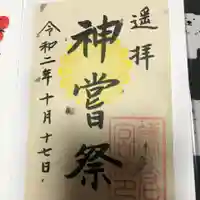 遥拝
神嘗祭
令和二年十月十七日